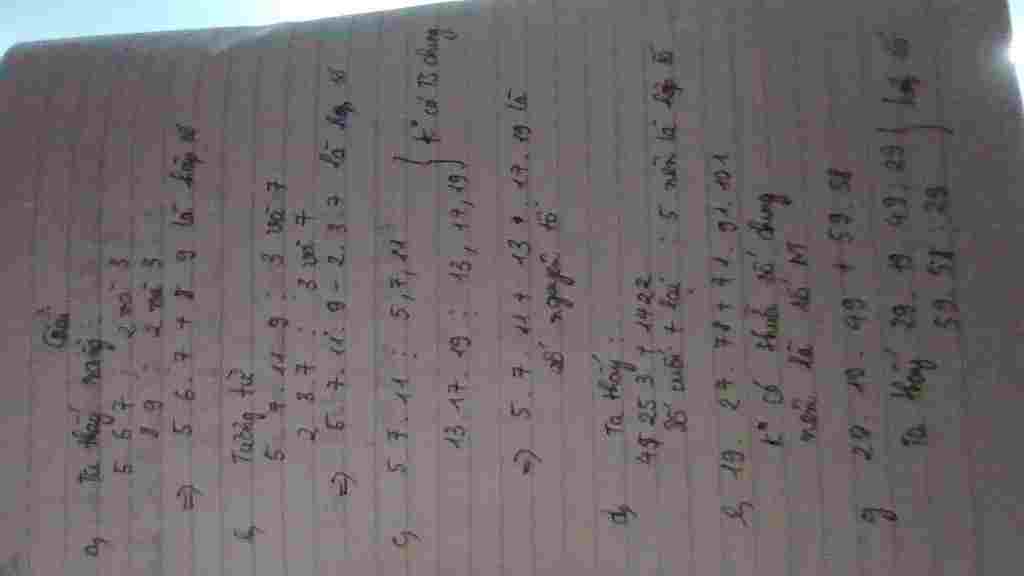 Giải
a, Ta thấy rằng:
5 6 7 ⋮ 2 và 3
8 9 ⋮ 2 và 3
=> 5 . 6 . 7 + 8 . 9 là hợp số
b, Tương tự
5 . 7 . 11 . 9 ⋮ 3 và 7
2 . 3 . 7 ⋮ 3 và 7
=> 5 . 7 . 11 . 9 - 2 . 3 . 7 là hợp số
c, 5 . 7 . 11 ⋮ 5, 7, 11
13 . 17 . 19 ⋮ 13, 17, 19 } K° có TS chung
=> 5 . 7 . 11 + 13 . 17 . 19 là
số nguyên tố
d, Ta thấy :
4253 + 1422
Số cuối + lại ⋮ 5 nên là hợp số
e, 19 . 27 . 78 + 71 . 91 . 101
K° có thừa số chung
nên là số NT
g 29 . 19 . 49 + 59 . 58
Ta thấy 29 . 19 . 49 : 29 } hợp số
59 . 58 : 29